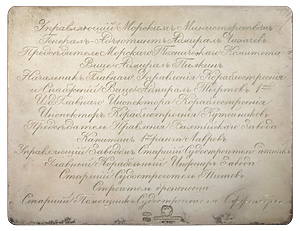 Управляющiй Морскимъ Министерствомъ
Генералъ-Адъютантъ Адмиралъ Чихачевъ
Председатель Морского Техническаго Комитета
Вице-Адмиралъ Пилкинъ
Начальникъ Главнаго Управленiя Кораблестроенiя
и Снабженiй Вице-Адмиралъ Тыртовъ 1
И.Д. Главнаго Инспектора Кораблестроенiя
Инспекторъ Кораблестроенiя Кутейниковъ
Председатель Правленiя Балтiйскаго Завода
Капитанъ 1 ранга
Управляющiй Заводомъ Старшiй Судостроитель
Главный Корабельный Инженеръ Завода
Старшiй Судостроитель Титовъ
Строитель броненосца
Старшiй Помощникъ Судостроителя